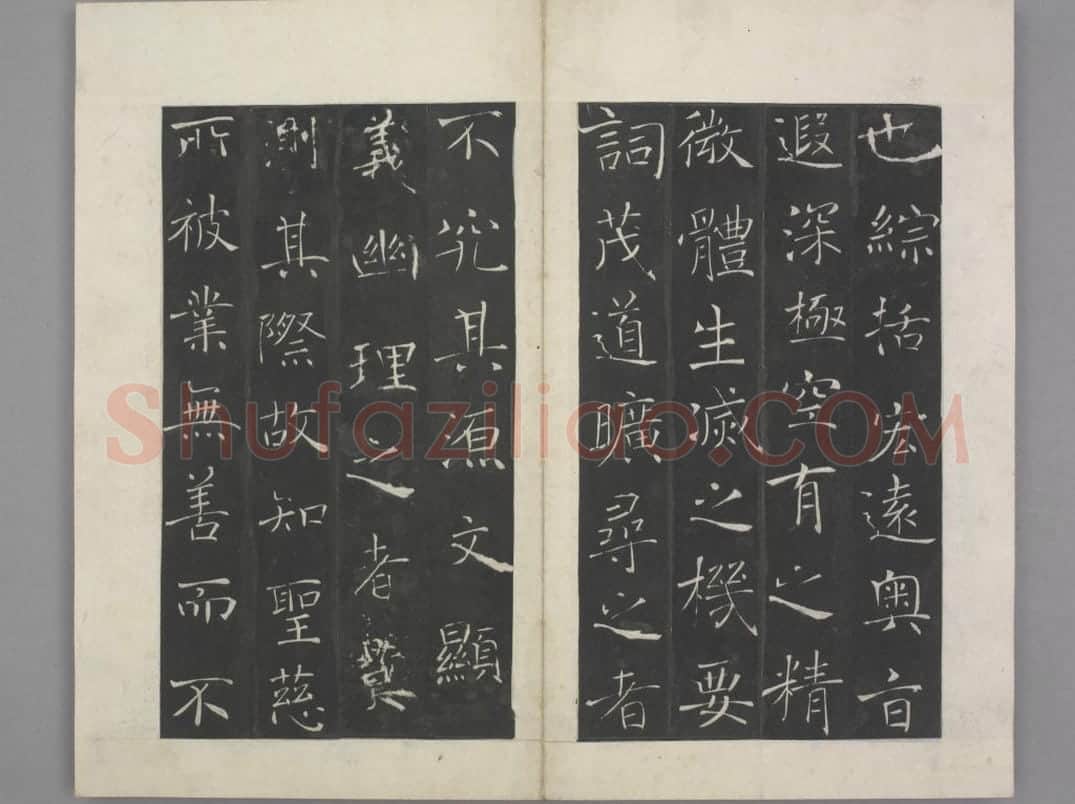 也綜括宏遠奧旨
遐深極空有之精
微體生滅之機要
詞茂道曠尋之者
不究其源文顯
義幽理之者莫
測其際故知聖慈
所被業無善而不
Shufaziliao.COM